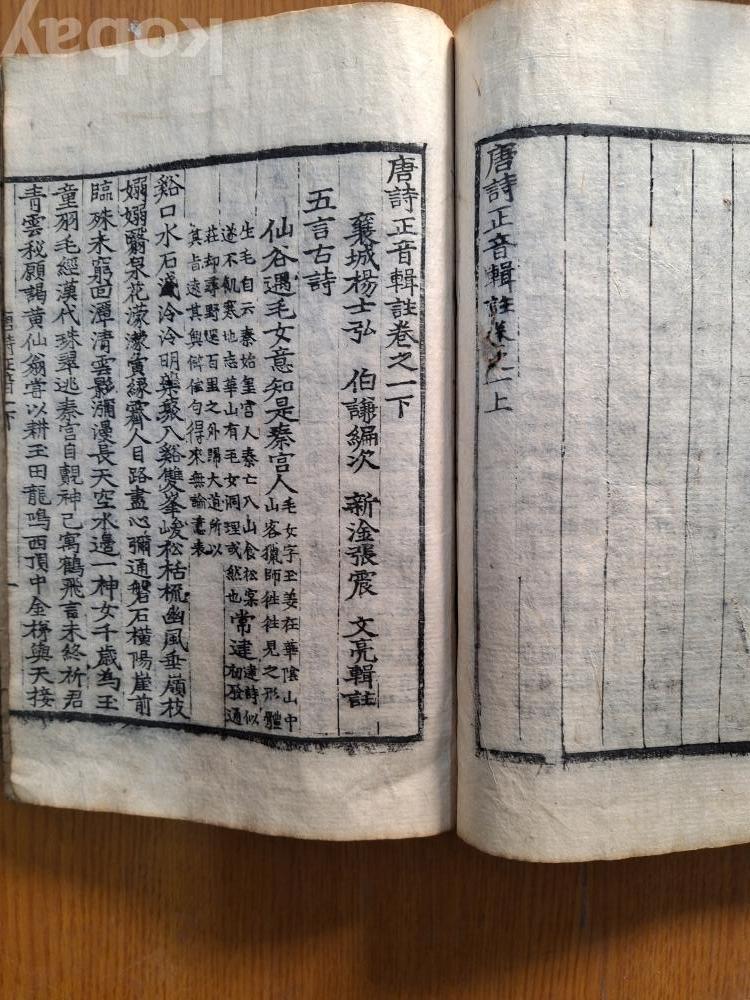 kobay
唐詩正音輯註卷之一上
唐詩正音輯註卷之一下
襄城楊士弘 伯謙編次 新淦張震 文亮輯註
五言古詩
仙谷遇毛女意知是秦宮人
毛女字玉姜在華陰山中
山客獵師徃徃見之形體
生毛自云秦始皇宮人秦亡入山食松
遂不飢寒地志華山有毛女洞理或然也
常建
建詩似
初發通
莊却尋野逕百里之外歸大道所以
其旨遠其興僻佳句得來無論意表
谿口水石淺泠泠明藥叢入谿雙峯峻松栝疎幽風垂嶺枝
嫋嫋翳泉花濛濛夤緣霽人目路盡心彌通盤石橫陽崖前
臨殊未窮回潭清雲影瀰漫長天空水邊一神女千歲為玉
童羽毛經漢代珠翠逃秦宮自覩神已寓鶴飛言未終祈君
青雲秘願謁黃仙翁嘗以耕玉田龍鳴西頂中金梯與天接
唐詩正音一下